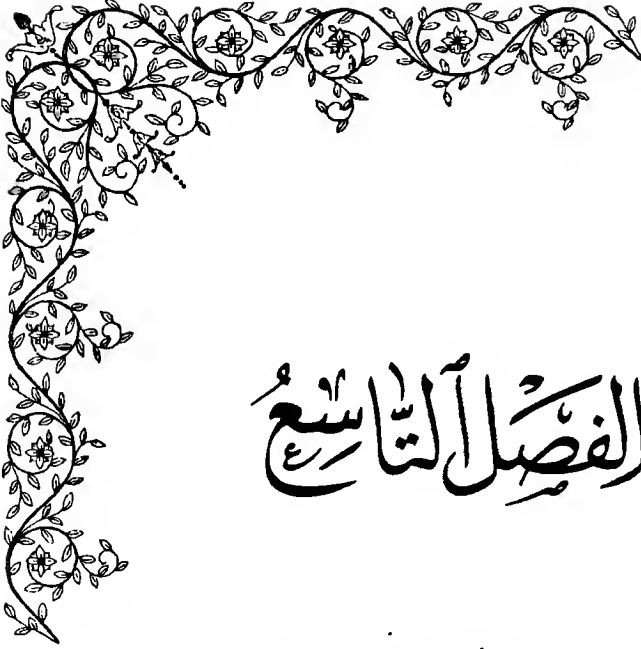 الفَصَل ٱلتَّاسِعُ